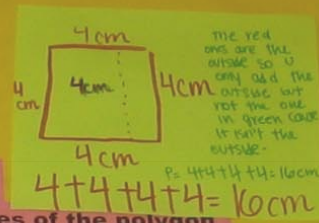 4cm
4cm
4
cm
4cm
4cm
The red
ones are the
outside so u
only add the
outside but
not the one
in green cause
it isn't the
outside.
P= 4+4+4+4=16cm
4+4+4+4= 16cm
es of the polygon